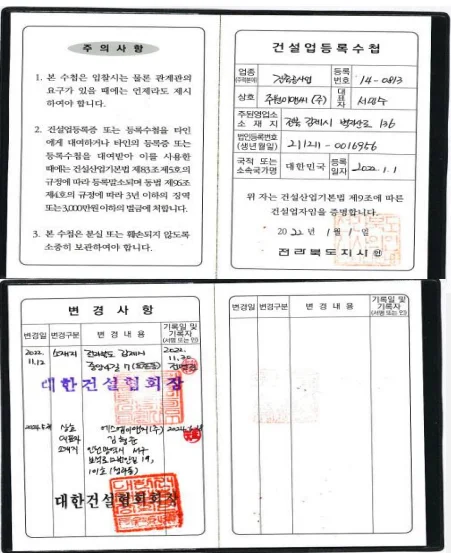 주 의 사 항
1. 본 수첩은 입찰시는 물론 관계관의
요구가 있을 때에는 언제라도 제시
하여야 합니다.
2. 건설업등록증 또는 등록수첩을 타인
에게 대여하거나 타인의 등록증 또는
등록수첩을 대여받아 이를 사용한
때에는 건설산업기본법 제83조 제5호의
규정에 따라 등록말소되며 동법 제95조
제4호의 규정에 따라 3년 이하의 징역
또는3,000만원이하의 벌금에 처합니다.
3. 본 수첩은 분실 또는 훼손되지 않도록
소중히 보관하여야 합니다.
건설업등록수첩
업종
(주력분야)
건축공사업
등록
번호
14-0813
상호
주원이앤씨 (주)
대
표
자
주된영업소
소 재 지
전북 김제시 136
법인등록번호
(생년월일)
211211-0016956
국적 또는
소속국가명
대한민국
등록
일자
2022.1.1
위 자는 건설산업기본법 제9조에 따른
건설업자임을 증명합니다.
2022 년 1 월 1 일
전라북도지사 인
변 경 사 항
변경일 변경구분 변 경 내 용
기록일 및
기록자
(서명 또는 인)
2022.
11.12
소재지
전라북도 김제시
2022.
대한건설협회장
상호
(주)
대표자
김형준
소재지
인천광역시 서구
19,
대한건설협회장
변경일 변경구분 변 경 내 용
기록일 및
기록자
(서명 또는 인)